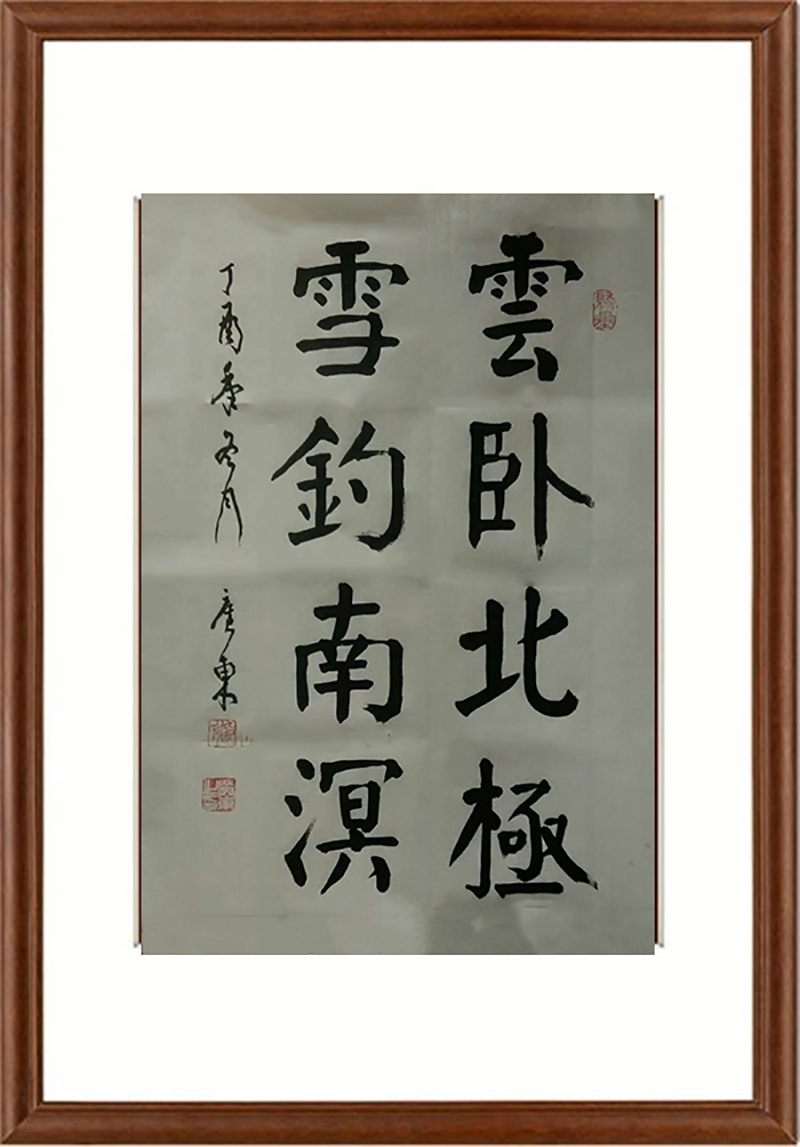 雲卧北極
雪釣南溟
丁酉年冬月 廣東